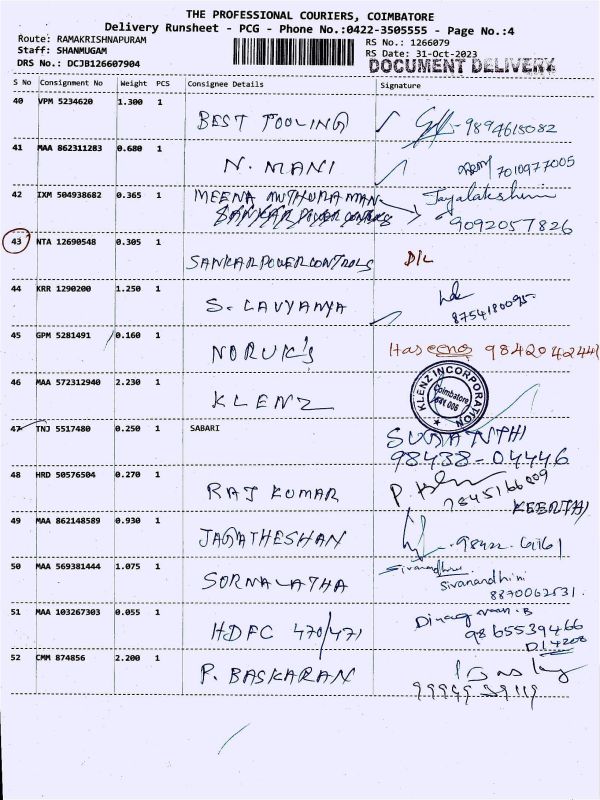 THE PROFESSIONAL COURIERS, COIMBATORE
Delivery Runsheet - PCG - Phone No.:0422-3505555 - Page No.:4
Route: RAMAKRISHNAPURAM
Staff: SHANMUGAM
DRS No.: DCJB126607904
RS No.: 1266079
RS Date: 31-Oct-2023
DOCUMENT DELIVERY
S No Consignment No Weight PCS Consignee Details Signature
40 VPM 5234620 1.300 1 BEST TOOLING 9894615082
41 MAA 862311283 0.680 1 N. MANI 7010977005
42 IXM 504938682 0.365 1 MEENA MUTHURAMAN Jayalakshmi
SANKAR POWER CONTROLS 9092057826
43 NTA 12690548 0.305 1 SANKAR POWER CONTROLS D/L
44 KRR 1290200 1.250 1 S. LAVYANYA 8754180095
45 GPM 5281491 0.160 1 NORUK'S Haseena 9842042444
46 MAA 572312940 2.230 1 KLENZ KLENZ INCORPORATION
Coimbatore
47 TNJ 5517480 0.250 1 SABARI SUGANTHI
98438-04446
48 HRD 50576504 0.270 1 RAJ KUMAR
KEERTHI
49 MAA 862148589 0.930 1 JAGATHESHAN
50 MAA 569381444 1.075 1 SORNALATHA Sivanandhini
Sivanandhini
8870062531.
51 MAA 103267303 0.055 1 HDFC 470/471
9865539466
52 CMM 874856 2.200 1 P. BASKARAN Basky